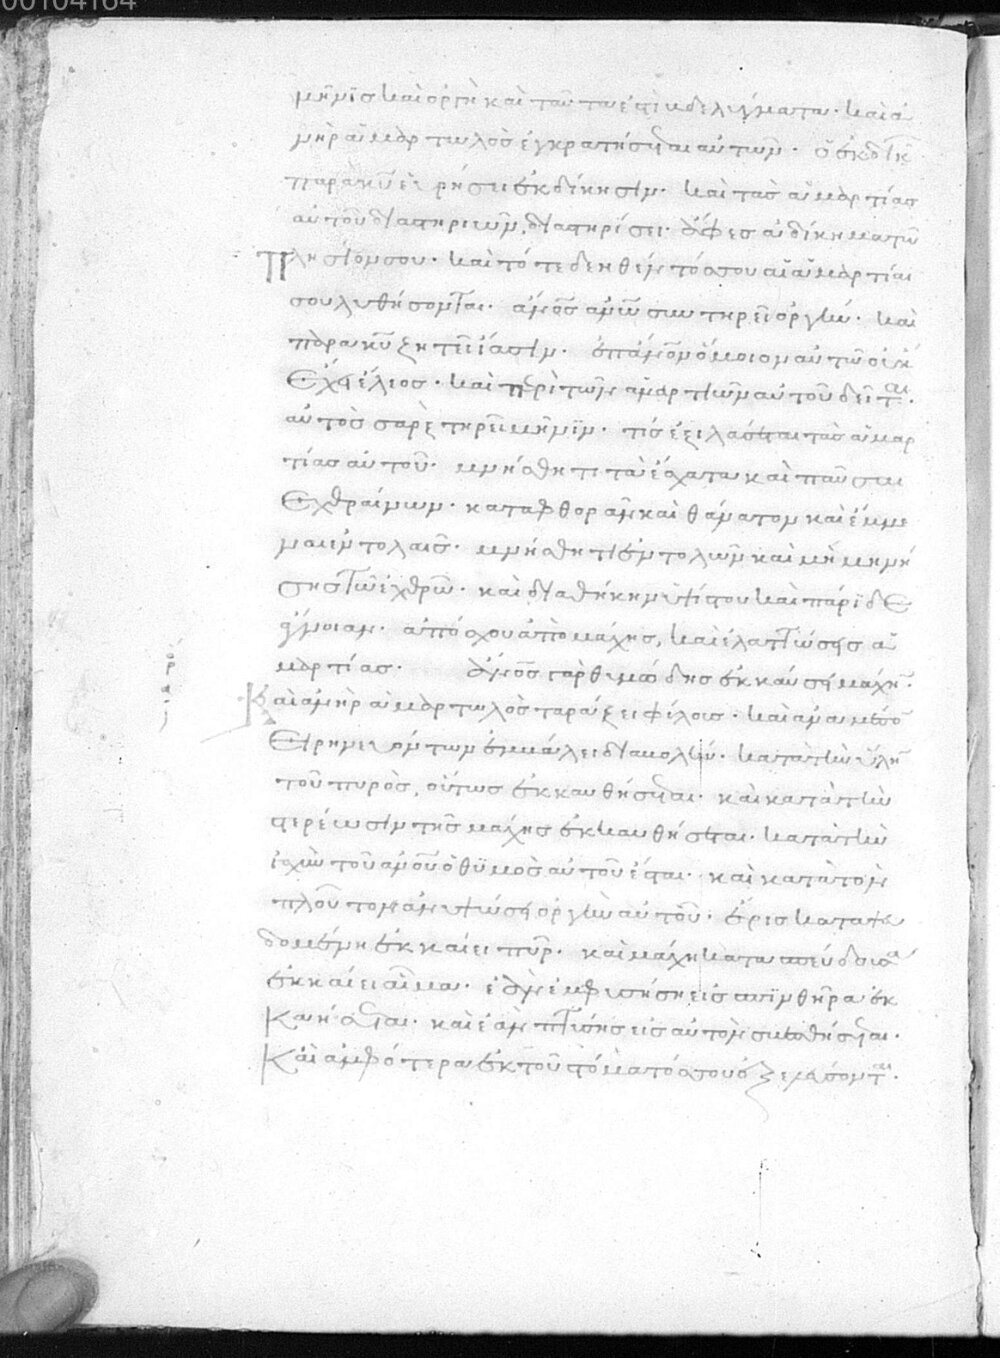 00104164
μῆνϊς καὶ ὀργὴ καὶ ταῦτα ἐστὶ βδελύγματα · καὶ ἀ
νὴρ ἁμαρτωλὸς ἐγκρατὴς ἔσται αὐτῶν · ὁ ἐκδικῶν
παρὰ κυ εὑρήσει ἐκδίκησϊν · καὶ τὰς ἁμαρτίας
αὐτοῦ διαστηριῶν, διαστηρίσει · ἄφες ἀδίκημα τῶ
πλησίον σου · καὶ τότε δεηθέντός σου αἱ ἁμαρτίαι
σου λυθήσονται · ἀνος ἀνω συντηρεῖ ὀργὴν · καὶ
παρὰ κυ ζητεῖ ἴασιν · ἐπ' ἀνον ὅμοιον αὐτῶ οὐκ
ἔχει ἔλεος · καὶ περὶ τῶν ἁμαρτιῶν αὐτοῦ δεῖται ·
αὐτὸς σὰρξ τηρεῖ μῆνϊν · τίς ἐξιλάσεται τὰς ἁμαρ
τίας αὐτοῦ · μνήσθητι τὰ ἔσχατα καὶ παῦσαι
ἐχθραίνων · καταφθορὰν καὶ θάνατον καὶ ἔμμε
νε ἐντολαῖς · μνήσθητι ἐντολῶν καὶ μὴ μηνί
σης τῶ ἐχθρῶ · καὶ διαθήκην ὑψίστου καὶ πάρϊδε
ἄγνοιαν · ἀπόσχου ἀπὸ μάχης, καὶ ἐλαττώσεις ἁ
μαρτίας · ἀνος γὰρ θυμώδης ἐκκαύσει μάχην ·
Καὶ ἀνὴρ ἁμαρτωλὸς ταράξει φίλους · καὶ ἀνὰ μέσον
εἰρηνευόντων ἐμβάλει διαβολήν · κατὰ τὴν ὕλην
τοῦ πυρὸς, οὕτως ἐκκαυθήσεται · καὶ κατὰ τὴν
στερέωσιν τῆς μάχης ἐκκαυθήσεται · κατὰ τὴν
ἰσχὺν τοῦ ἀνου ὁ θυμὸς αὐτοῦ ἔσται · καὶ κατὰ τὸν
πλοῦτον ἀνυψώσει ὀργὴν αὐτοῦ · ἔρις κατασπευ
δομένη ἐκκαίει πῦρ · καὶ μάχη κατασπεύδουσα
ἐκκαίει αἷμα · ἐὰν ἐμφυσήσης εἰς σπϊνθῆρα ἐκ
καήσεται · καὶ ἐὰν πτύσης εἰς αὐτὸν σβεσθήσεται ·
Καὶ ἀμφότερα ἐκ τοῦ στόματός σου ἐξελεύσονται ·